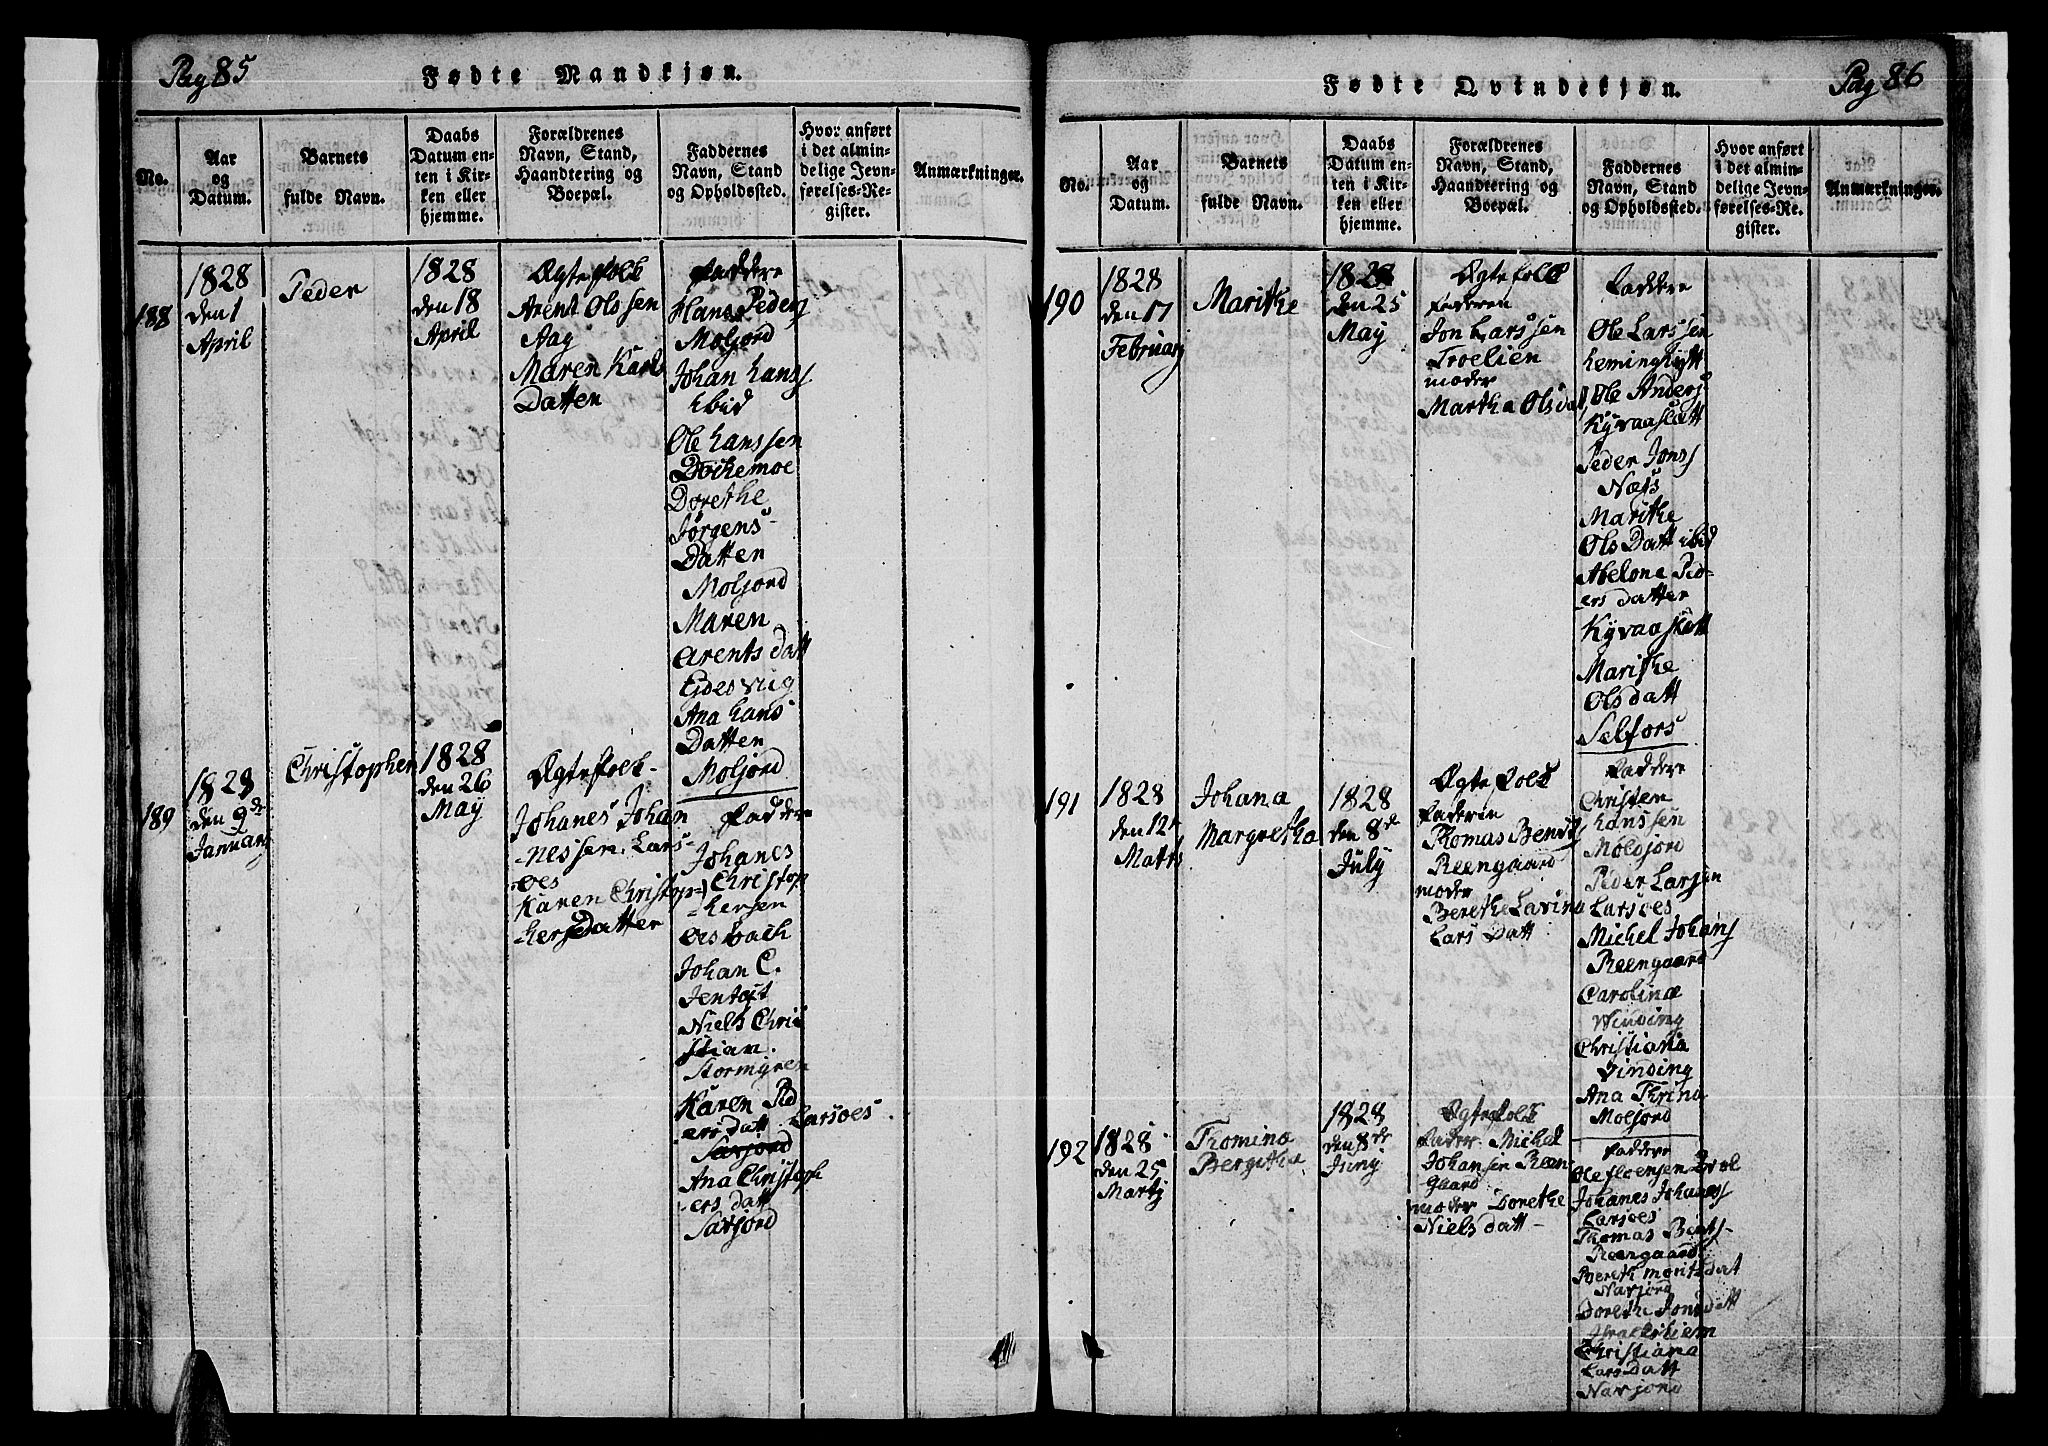 Pag 85
Fødte Mandkjøn.
No.
Aar
og
Datum.
Barnets
fulde Navn.
Daabs
Datum en-
ten i Kir-
ken eller
hjemme.
Forældrenes
Navn, Stand,
Haandtering og
Boepæl.
Faddernes
Navn, Stand
og Opholdssted.
Hvor anført
i det almin-
delige Jevn-
førelses-Re-
gister.
Anmærkninger.
188
1828
den 1
April
Peder
1828
den 18
April
Ægtefolk
Arent Olssen
Aag
Maren Karls
Datten
Faddere
Hans Peders
Moljord
Johan Hanss
ibid
Ole Hanssen
Dorethe
Jørgens-
Datten
Moljord
Maren
Arents datt
Ana Hans
Datten
Moljord
189
1828
den 9de
Januarj
Christopher
1828
den 26
May
Ægtefolk-
Johanes Johan
-nessen. Lars-
oes
Karen Christop-
-hersDatter
Faddere
Johanes
Christop
-hersen
Oesbach
Johan C.
Jentoft
Niels Chris
stian.
Stormgren
Karen Ped
ersdatt Larsoes.
Ana Christoph
-ers datt
Saxjord
Pag 86
Fødte Qvindekjøn.
No.
Aar
og
Datum.
Barnets
fulde Navn.
Daabs
Datum en-
ten i Kir-
ken eller
hjemme.
Forældrenes
Navn, Stand,
Haandtering og
Boepæl.
Faddernes
Navn, Stand
og Opholdssted.
Hvor anført
i det almin-
delige Jevn-
førelses-Re-
gister.
Anmærkninger.
190
1828
den 17
Februarj
Marithe
1828
den 25
May
Ægtefolk
Faderen
Jon Larssen
Troelien
moder
Martha Olsdat
Faddere
Ole Larssen
Heminghytt
Ole Anders
Peder Jonss
Næss
Marithe
Ols Datt ibid
Abelona Ped-
-ers datter
Marithe
Olsdatt
Selfors
191
1828
den 12t
Johana
Margretha
1828
den 8de
July
Ægtefolk
Faderen
Thomas Bends
Reengaard
moder
Berethe Lavina
Lars Datt
Faddere
Christen
Hanssen
Moldjord
Peder Larsen
Larsoes
Michel Johans
Reengaard
Carolina
Winding
Christiana
Vinding
Ana Thrina
Moljord
192
1828
den 25
Martj
Tromina
Bergitha
1828
den 8de
Junj
Ægtefolk
Fader. Michel
Johansen Reen-
gaard
moder Dorethe
Nielsdatt-
Faddere
Johanes Johaness
Larsoes
Thomas Bents-
Reengaard
Bereth moritsdat
Navjord
Dorethe Jonsdatt
Christiana
Larsdatt
Navjord